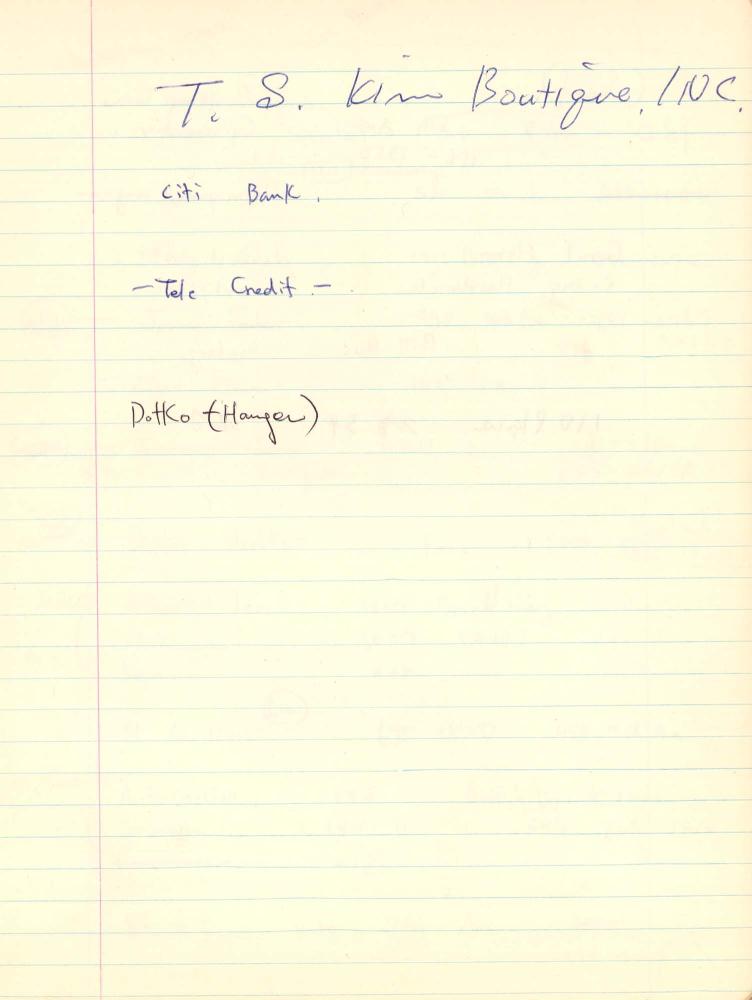 T. S. Kim Boutique, INC.
Citi Bank.
- Tele Credit -
DottKo (Hanger)